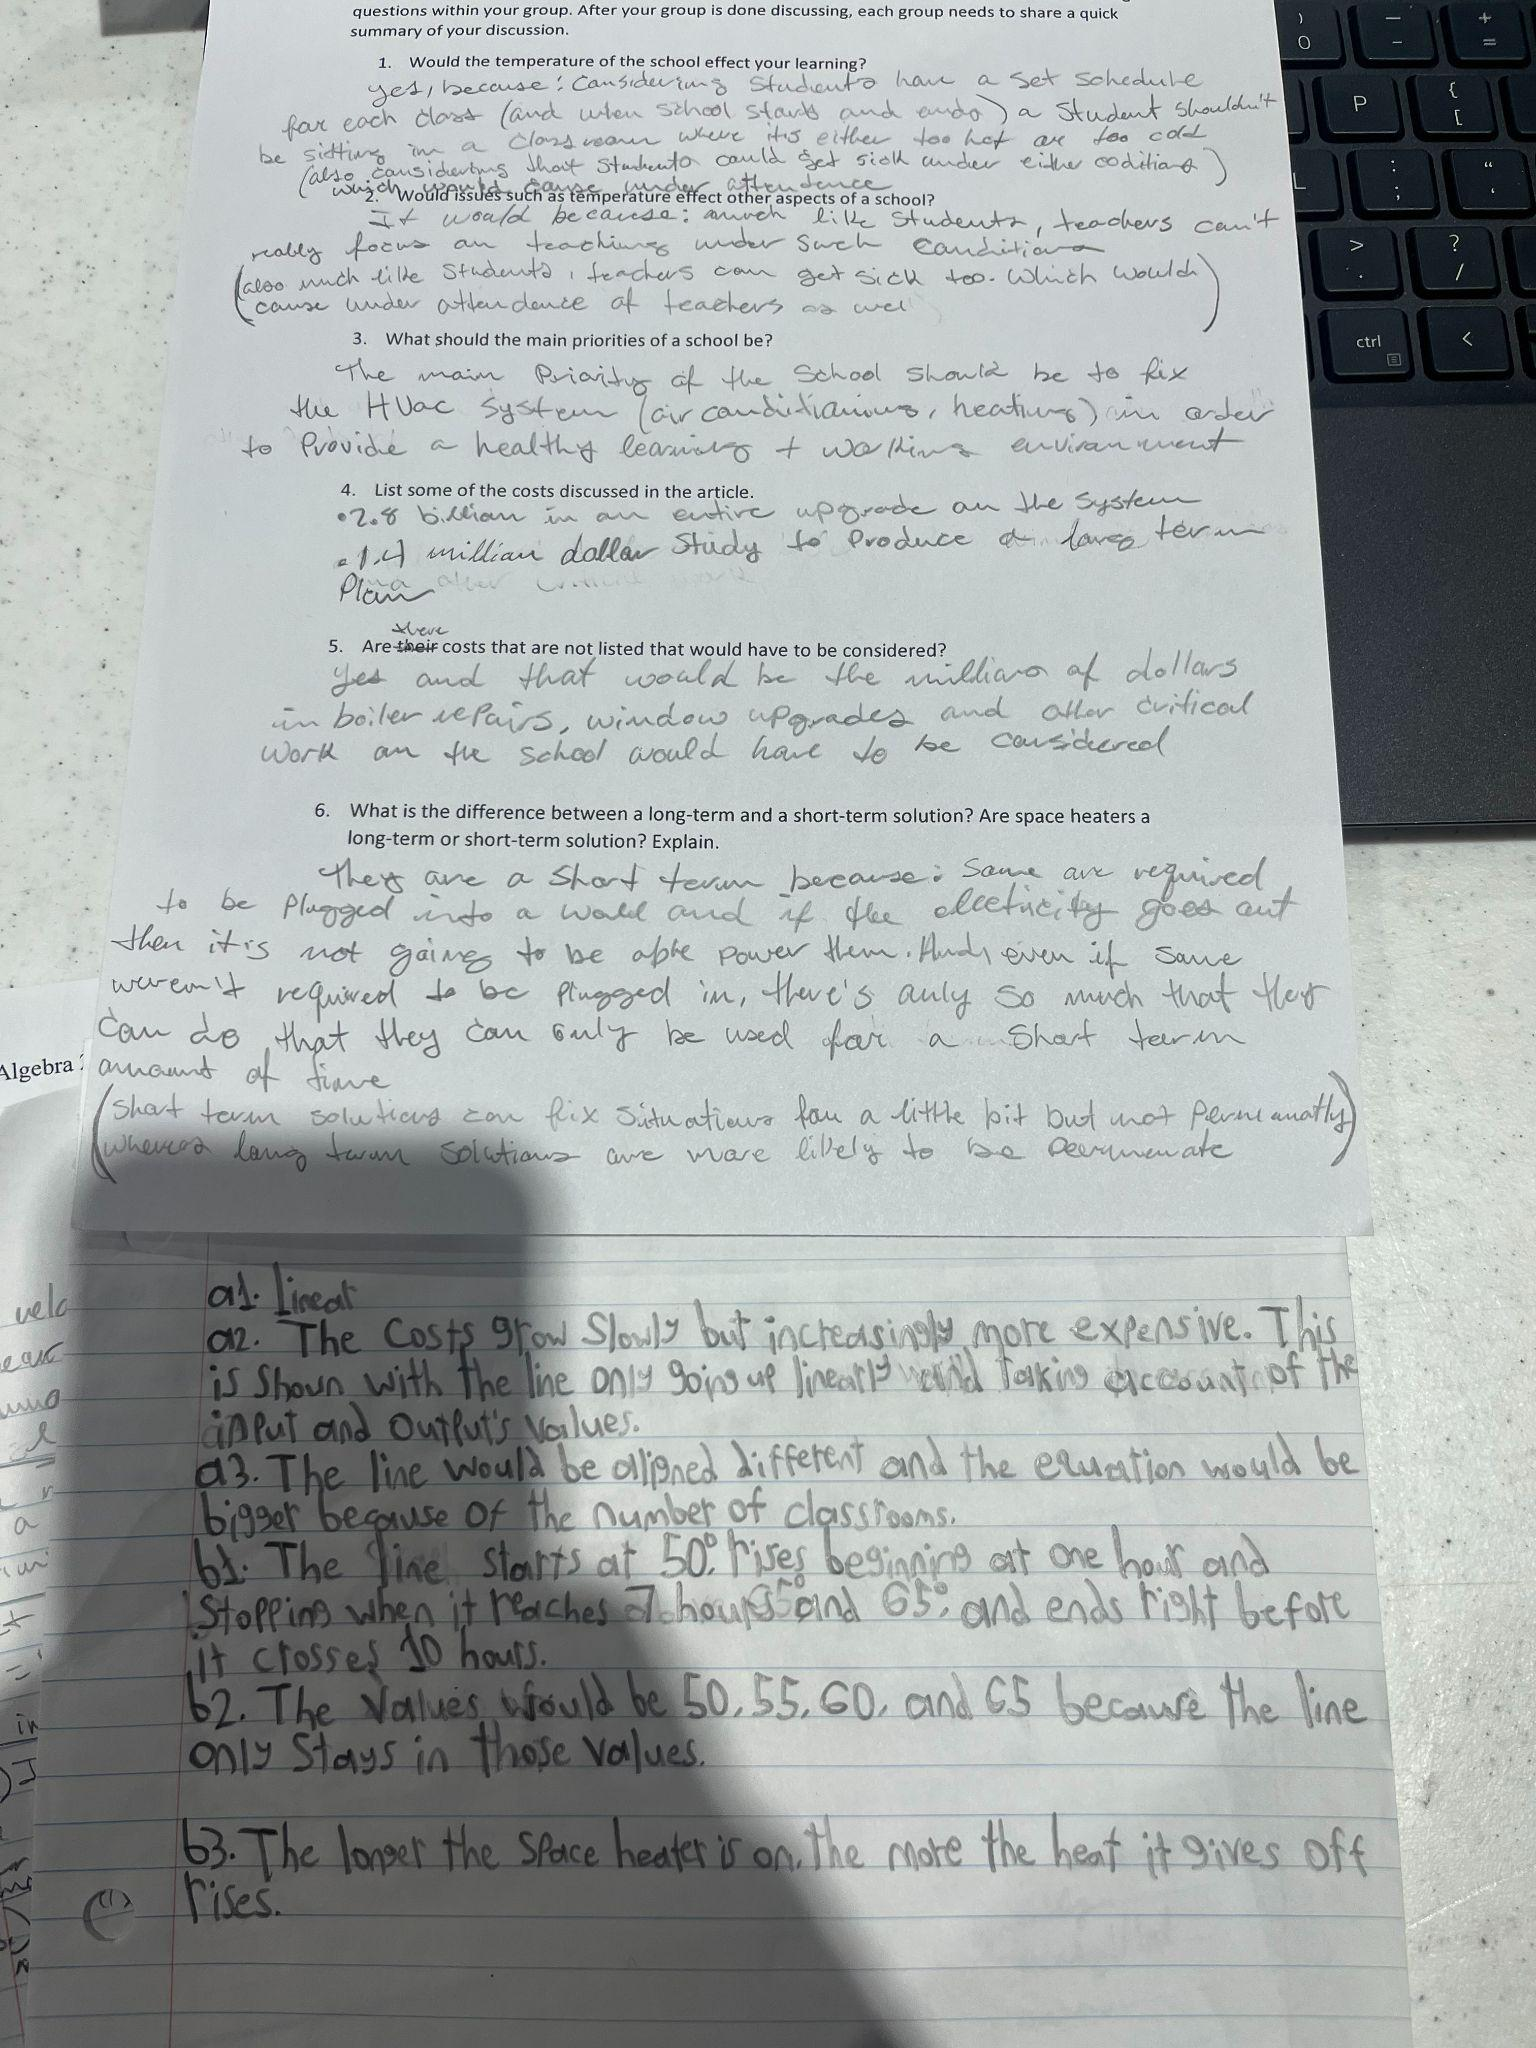 questions within your group. After your group is done discussing, each group needs to share a quick
summary of your discussion.
1. Would the temperature of the school effect your learning?
yes, because: Considering Students have a set schedule
for each class (and when school starts and ends) a student shouldn't
be sitting in a classroom where it's either too hot or too cold
(also considering that Students could get sick under either coditions)
which would cause under attendence
2. Would issues such as temperature effect other aspects of a school?
It would because: much like students, teachers can't
really focus on teaching under such conditions
(also much like students, teachers can get sick too. Which would
cause under attendence of teachers as well)
3. What should the main priorities of a school be?
The main Priority of the School should be to fix
the HVac System (air conditioning, heating) in order
to Provide a healthy learning + working environment
4. List some of the costs discussed in the article.
• 2.8 billion in an entire upgrade on the system
• 1.4 million dollar Study to Produce a long term
Plan
there
5. Are their costs that are not listed that would have to be considered?
Yes and that would be the millions of dollars
in boiler repairs, window upgrades and other critical
work on the school would have to be considered
6. What is the difference between a long-term and a short-term solution? Are space heaters a
long-term or short-term solution? Explain.
They are a short term because: Some are required
to be Plugged into a wall and if the electricity goes out
then it is not going to be able power them. And, even if some
weren't required to be plugged in, there's only so much that they
can do that they can only be used for a short term
amount of time
(Short term solutions can fix situations for a little bit but not
whereas long term solutions are more likely to be
Algebra
a1. Linear
a2. The Costs grow Slowly but increasingly more expensive. This
is shown with the line only going up linearly and Taking account of the
input and Output's Values.
a3. The line would be aligned different and the equation would be
bigger because of the number of classrooms.
b1. The line starts at 50°, rises beginning at one hour and
Stopping when it reaches 7 hours and 65°, and ends right before
it crosses 10 hours.
b2. The Values would be 50, 55, 60, and 65 because the line
only Stays in those values.
b3. The longer the space heater is on, the more the heat it gives off
rises.
)
0
-
+
=
P
{
[
L
:
;
"
>
.
?
/
ctrl
<